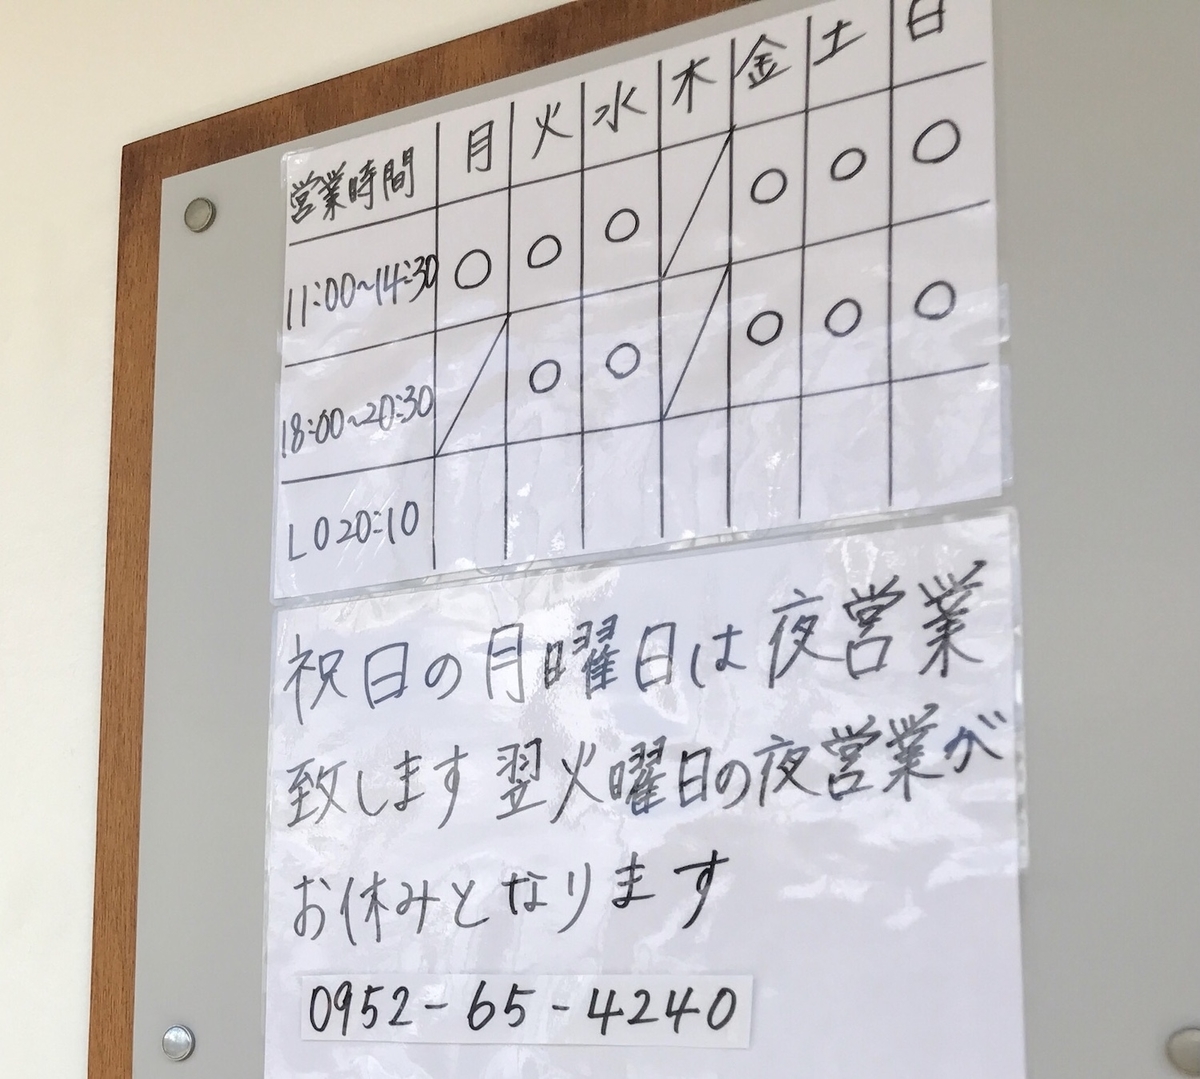 営業時間 月 火 水 木 金 土 日
11:00~14:30 ○ ○ ○ ○ ○ ○
18:00~20:30 ○ ○ ○ ○ ○
LO 20:10
祝日の月曜日は夜営業
致します 翌火曜日の夜営業が
お休みとなります
0952-65-4240